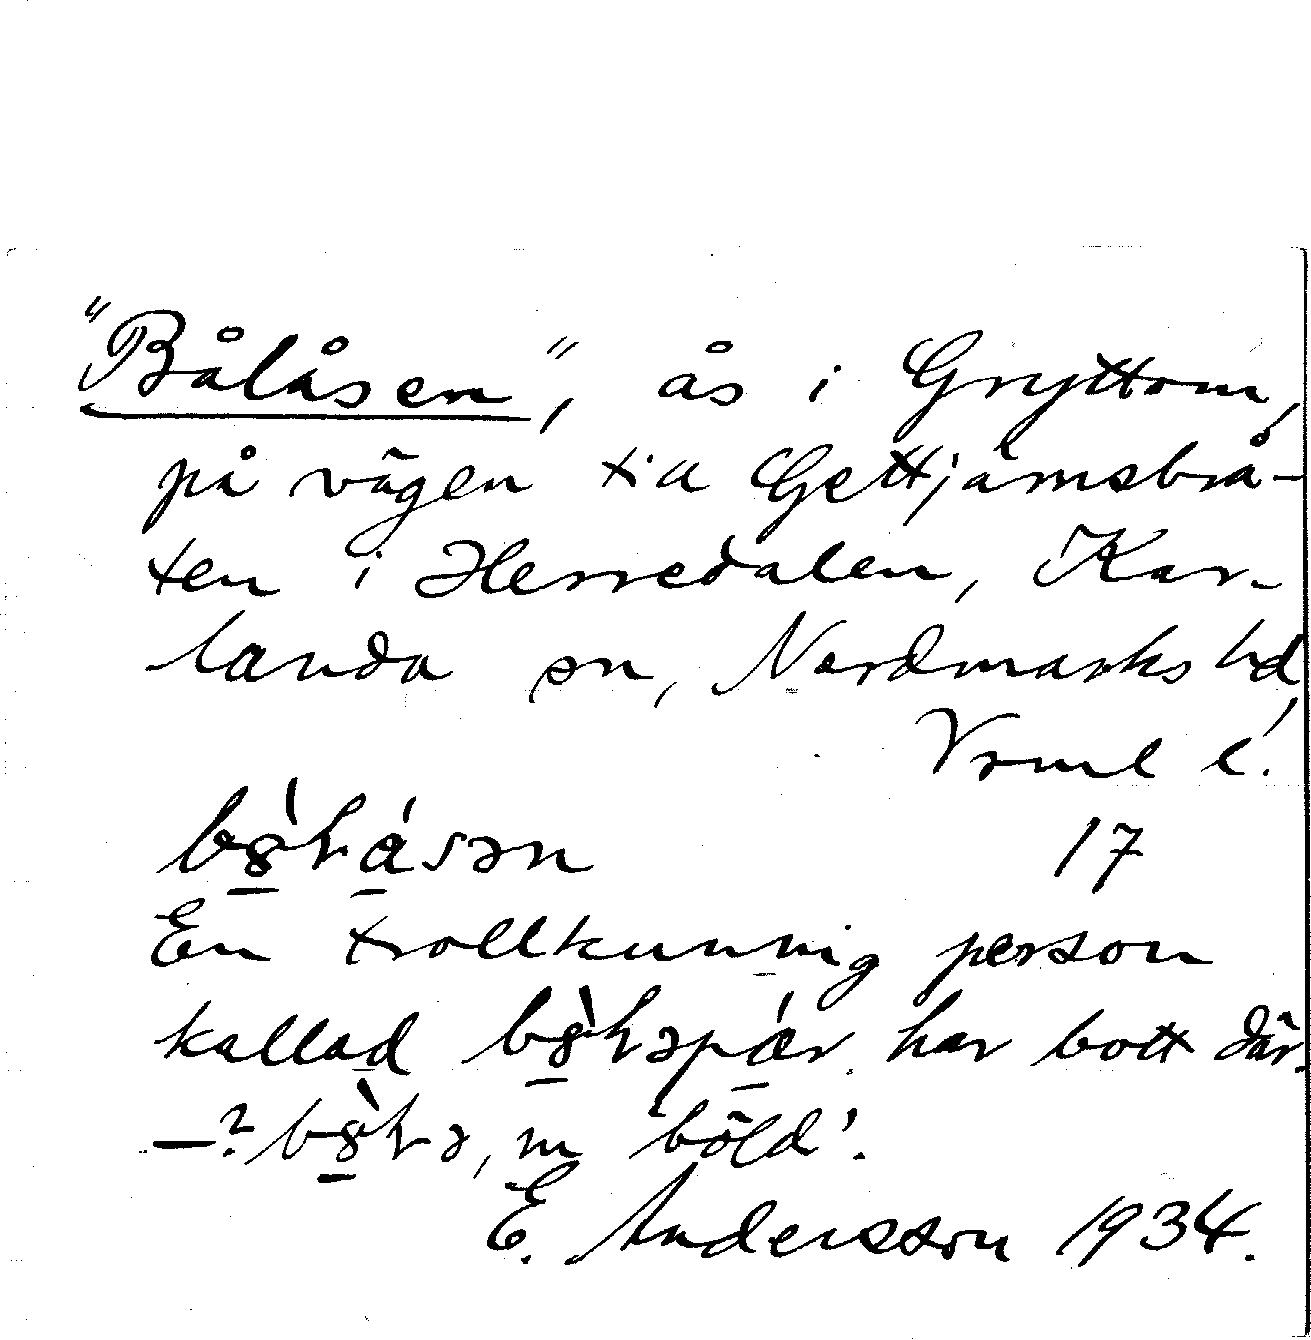 "Bålåsen", ås i Gryttom,
på vägen till Gettjärnsbrå-
ten i Herredalen, Kar-
landa sn, Nordmarks hd,
Vrml l.
17
En trollkunnig person
kallad har bott där.
—? , m 'böld'.
E. Andersson 1934.